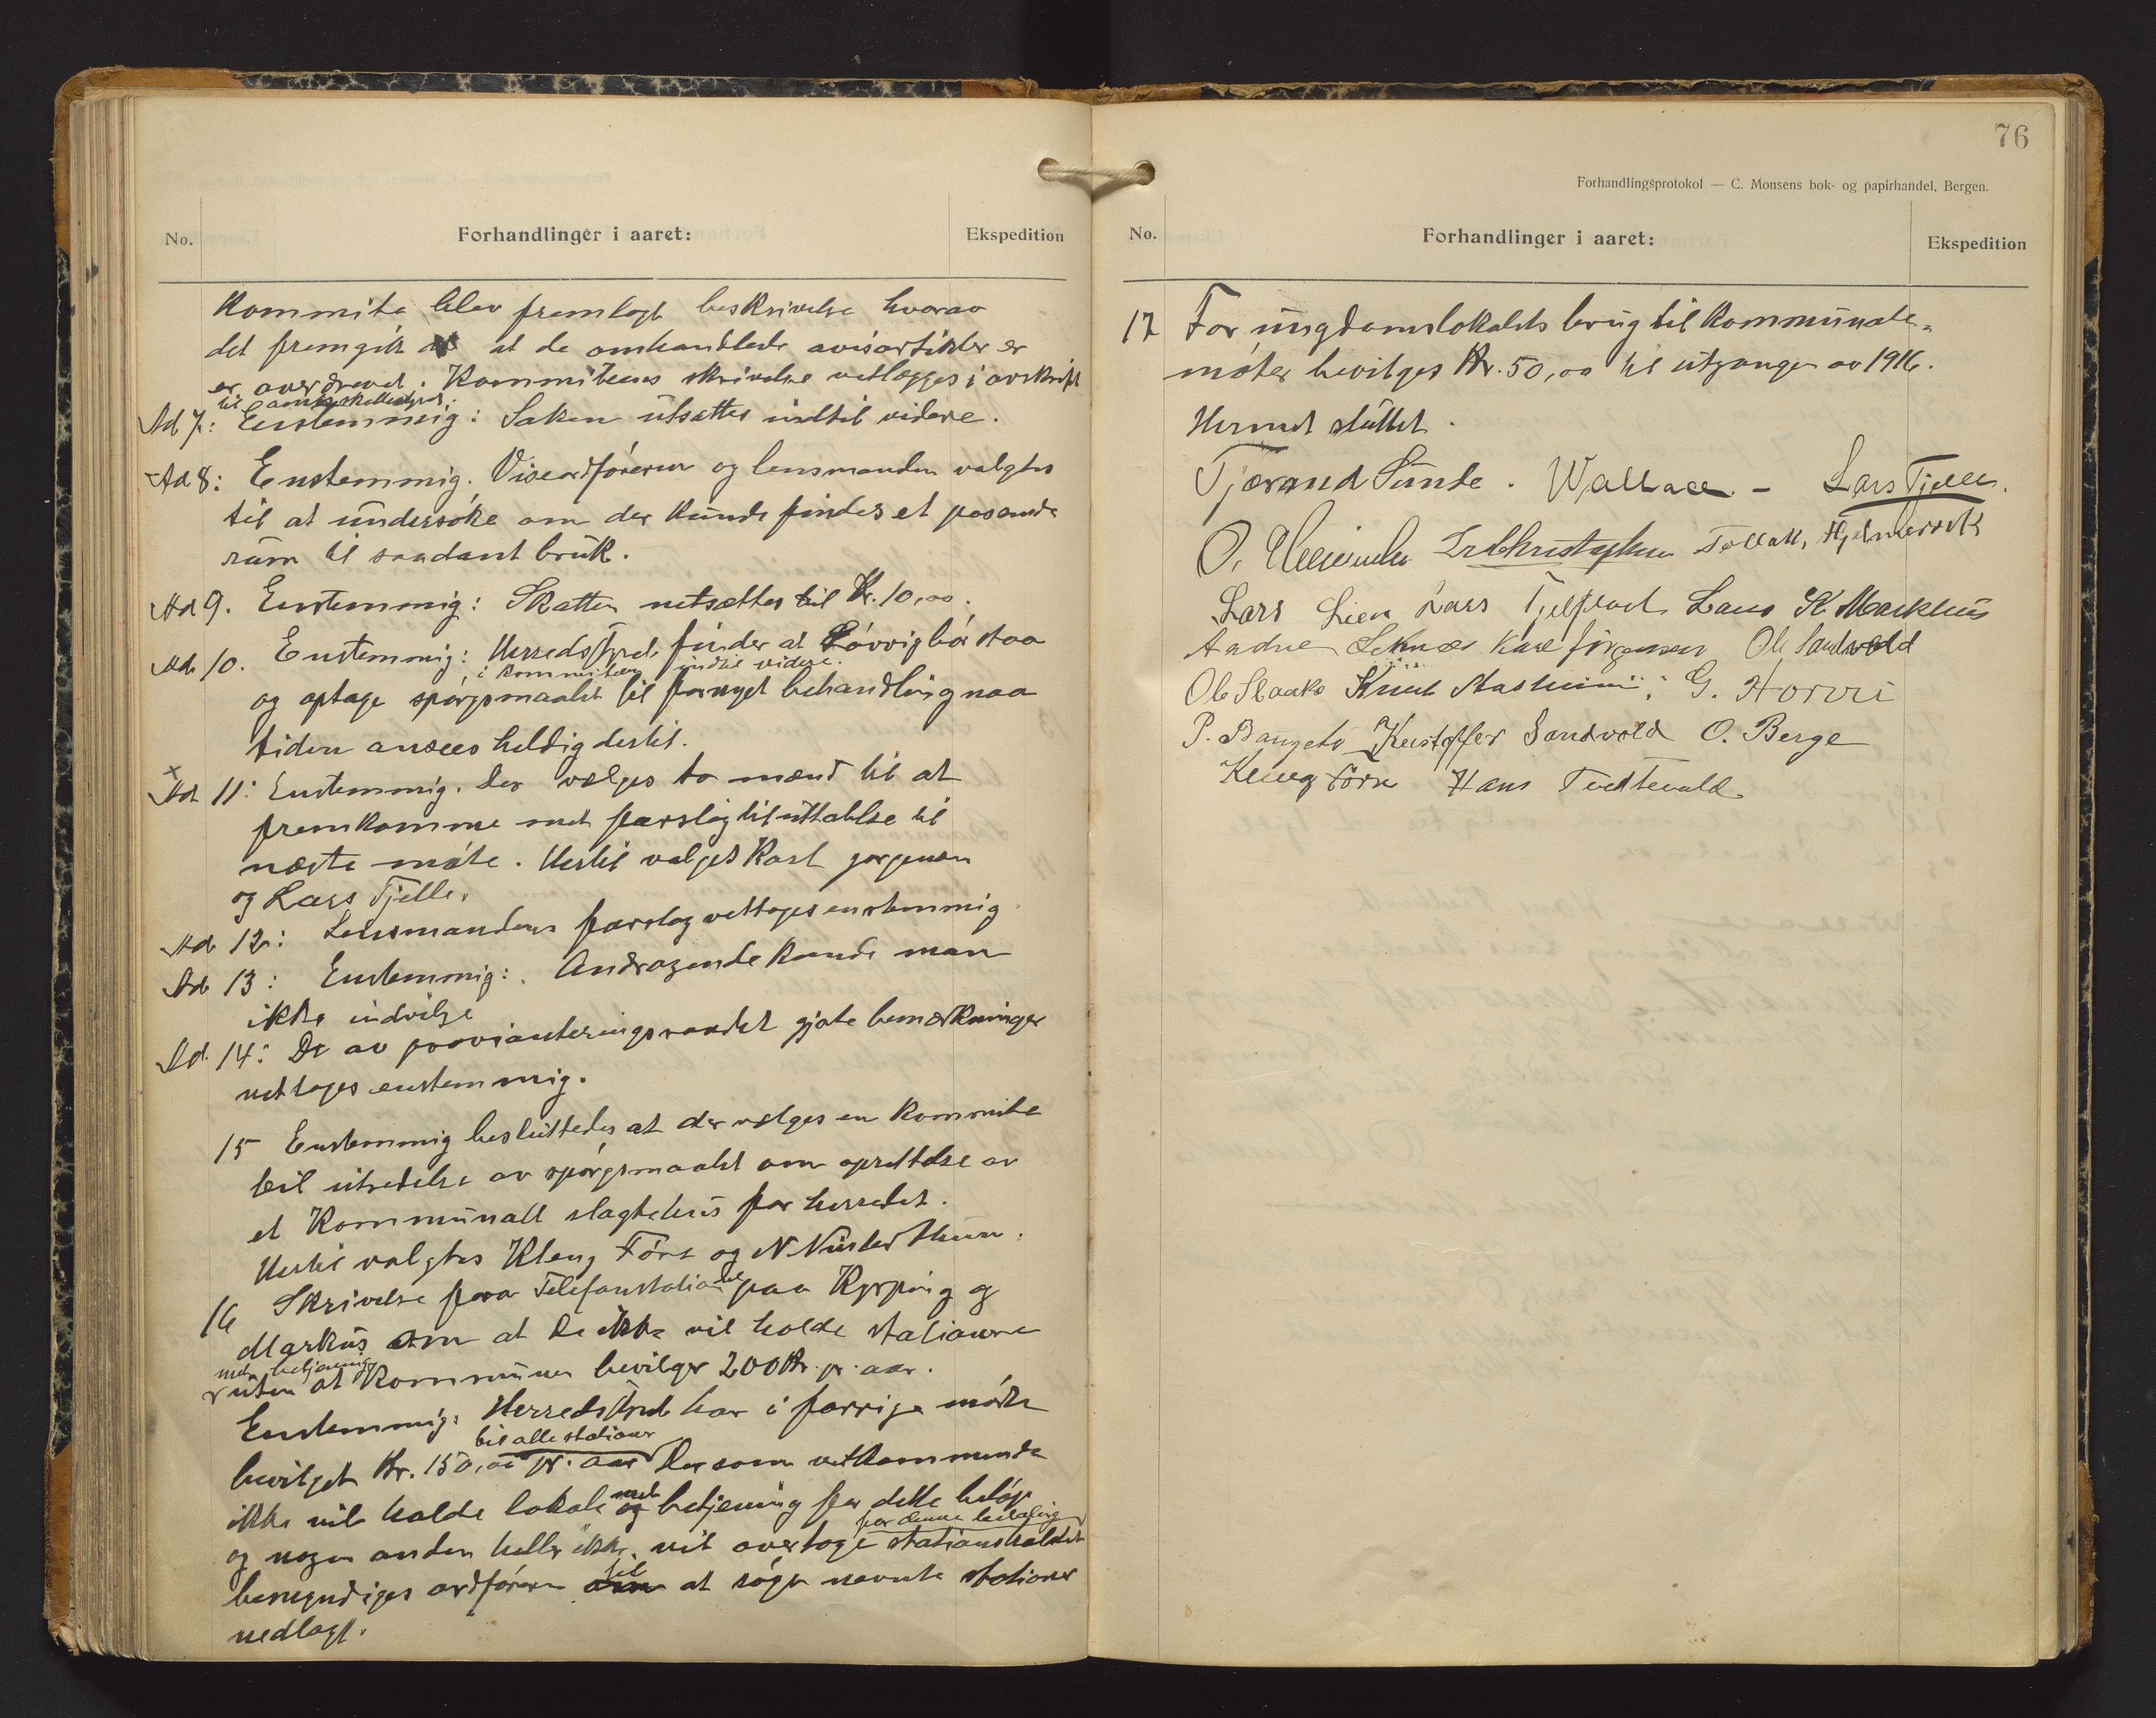 No. Forhandlinger i aaret: Ekspedition
Kommite blev fremlagt beskrivelse hvorav
det fremgik at de omhandlede avisartikler er
er overdrevet. Kommiteens skrivelse vetlægges i avskrift
til amtsskattestyret.
Ad 7: Enstemmig: Saken utsættes indtil videre.
Ad 8: Enstemmig. Viseordføreren og lensmanden valgtes
til at undersøke om der kunde findes et pasende
rum til saadant bruk.
Ad 9. Enstemmig: Skatten netsættes til Kr. 10,00.
Ad 10. Enstemmig: Herredstyret finder at Løvvig bør staa
i kommiteen indtil videre.
og optage spørgsmaalet til fornyet behandling naa
tiden ansees heldig dertil.
x
Ad 11: Enstemmig. Der vælges to mænd til at
fremkomme met forslag til uttalelse til
næste møte. Hertil valges Karl Jørgensen
og Lars Fjelle.
Ad 12: Lensmandens forslag vettages enstemmig.
Ad 13: Enstemmig: Andragende kunde man
ikke indvilge
Ad 14: De av provianteringsraadet gjorte bemærkninger
vettages enstemmig.
15 Enstemmig besluttedes at der vælges en Kommite
til utredelse av spørgsmaalet om oprettelse av
et Kommunalt slagtehus for herredet.
Hertil valgtes Kleng Førre og N. Nusterthun.
16 Skrivelse fra Telefonstationene paa Kyrping og
Markus om at de ikke vil holde stationerne
med betjening
uten at Kommunen bevilger 200 Kr. pr. aar.
Enstemmig: Herredstyret har i forrige møte
til alle stationer
bevilget Kr. 150,00 pr. aar Dersom vetkommende
ikke vil holde lokale med og betjening for dette beløp
for denne betaling
og nogen anden heller ikke vil overtage stationsholdet
bemyndiges ordføreren om til at søge nevnte stationer
nedlagt.
76
Forhandlingsprotokol — C. Monsens bok- og papirhandel, Bergen.
No. Forhandlinger i aaret: Ekspedition
17 For ungdomslokalets brug til Kommunale-
møter bevilges Kr. 50,00 til utgangen av 1916.
Hermet sluttet.
Tjærand Sunde. Wallace – Lars Fjelle.
O. Christophersen Tollak Hjelmervik
Lars Lien Lars Fjelstad Lars K. Markhus
Aadne Leknes Karl Jørgensen Ole Sandvold
Ole Staako Knut G. Horvei
P. Kristoffer Sandvold O. Berge
Kleng Førre Hans Tveitevold